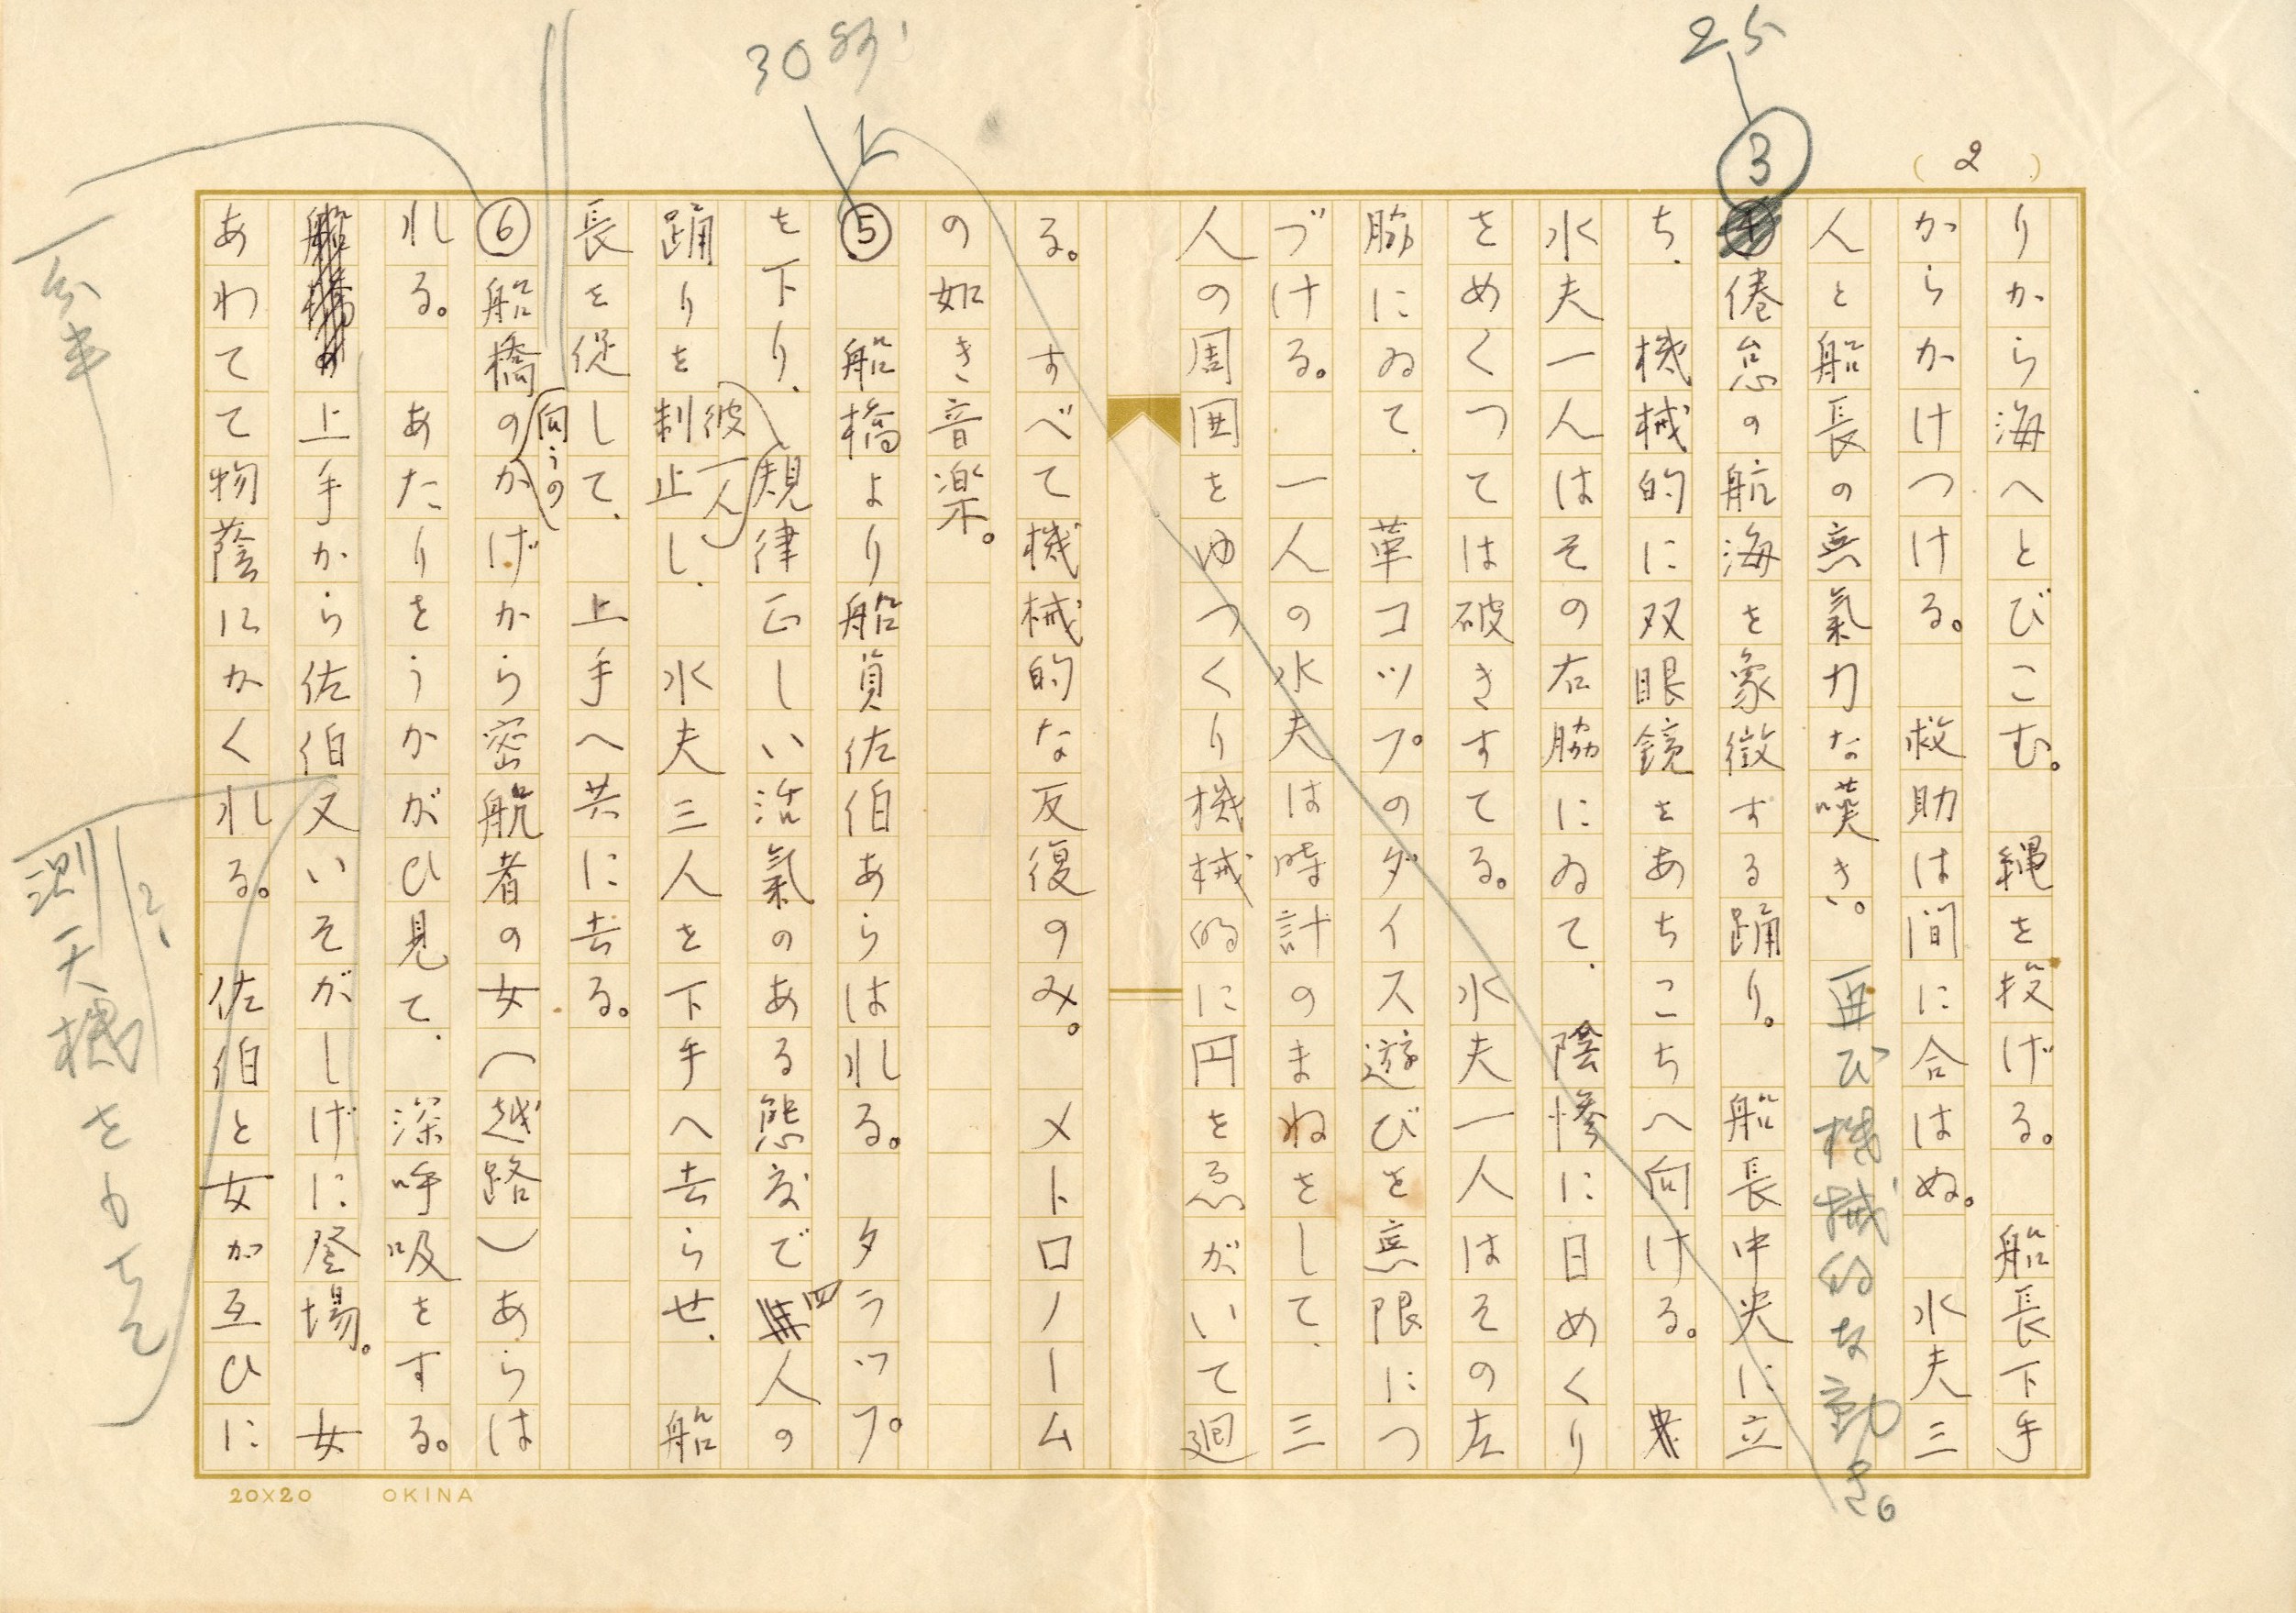 (2)
りから海へとびこむ。 縄を投げる。 船長下手
からかけつける。 救助は間に合はぬ。 水夫三
人と船長の無氣力な嘆き。 再び機械的な動き。
25
③
倦怠の航海を象徴する踊り。 船長中央に立
ち、機械的に双眼鏡をあちこちへ向ける。
水夫一人はその右脇にゐて、陰惨に日めくり
をめくつては破きすてる。 水夫一人はその左
脇にゐて、革コツプのダイス遊びを無限につ
づける。 一人の水夫は時計のまねをして、三
人の周囲をゆつくり機械的に円をゑがいて廻
る。 すべて機械的な反復のみ。 メトロノーム
の如き音楽。
30秒
⑤ 船橋より船員佐伯あらはれる。 タラップ
を下り、規律正しい活氣のある態度で四人の
彼一人
踊りを制止し、水夫三人を下手へ去らせ、船
長を従して、上手へ共に去る。
向うの
⑥船橋のかげから密航者の女(越路)あらは
れる。 あたりをうかがひ見て、深呼吸をする。
上手から佐伯又いそがしげに登場。 女
あわてて物蔭にかくれる。 佐伯と女が互ひに
一分半
測天機をもちて
20×20 OKINA